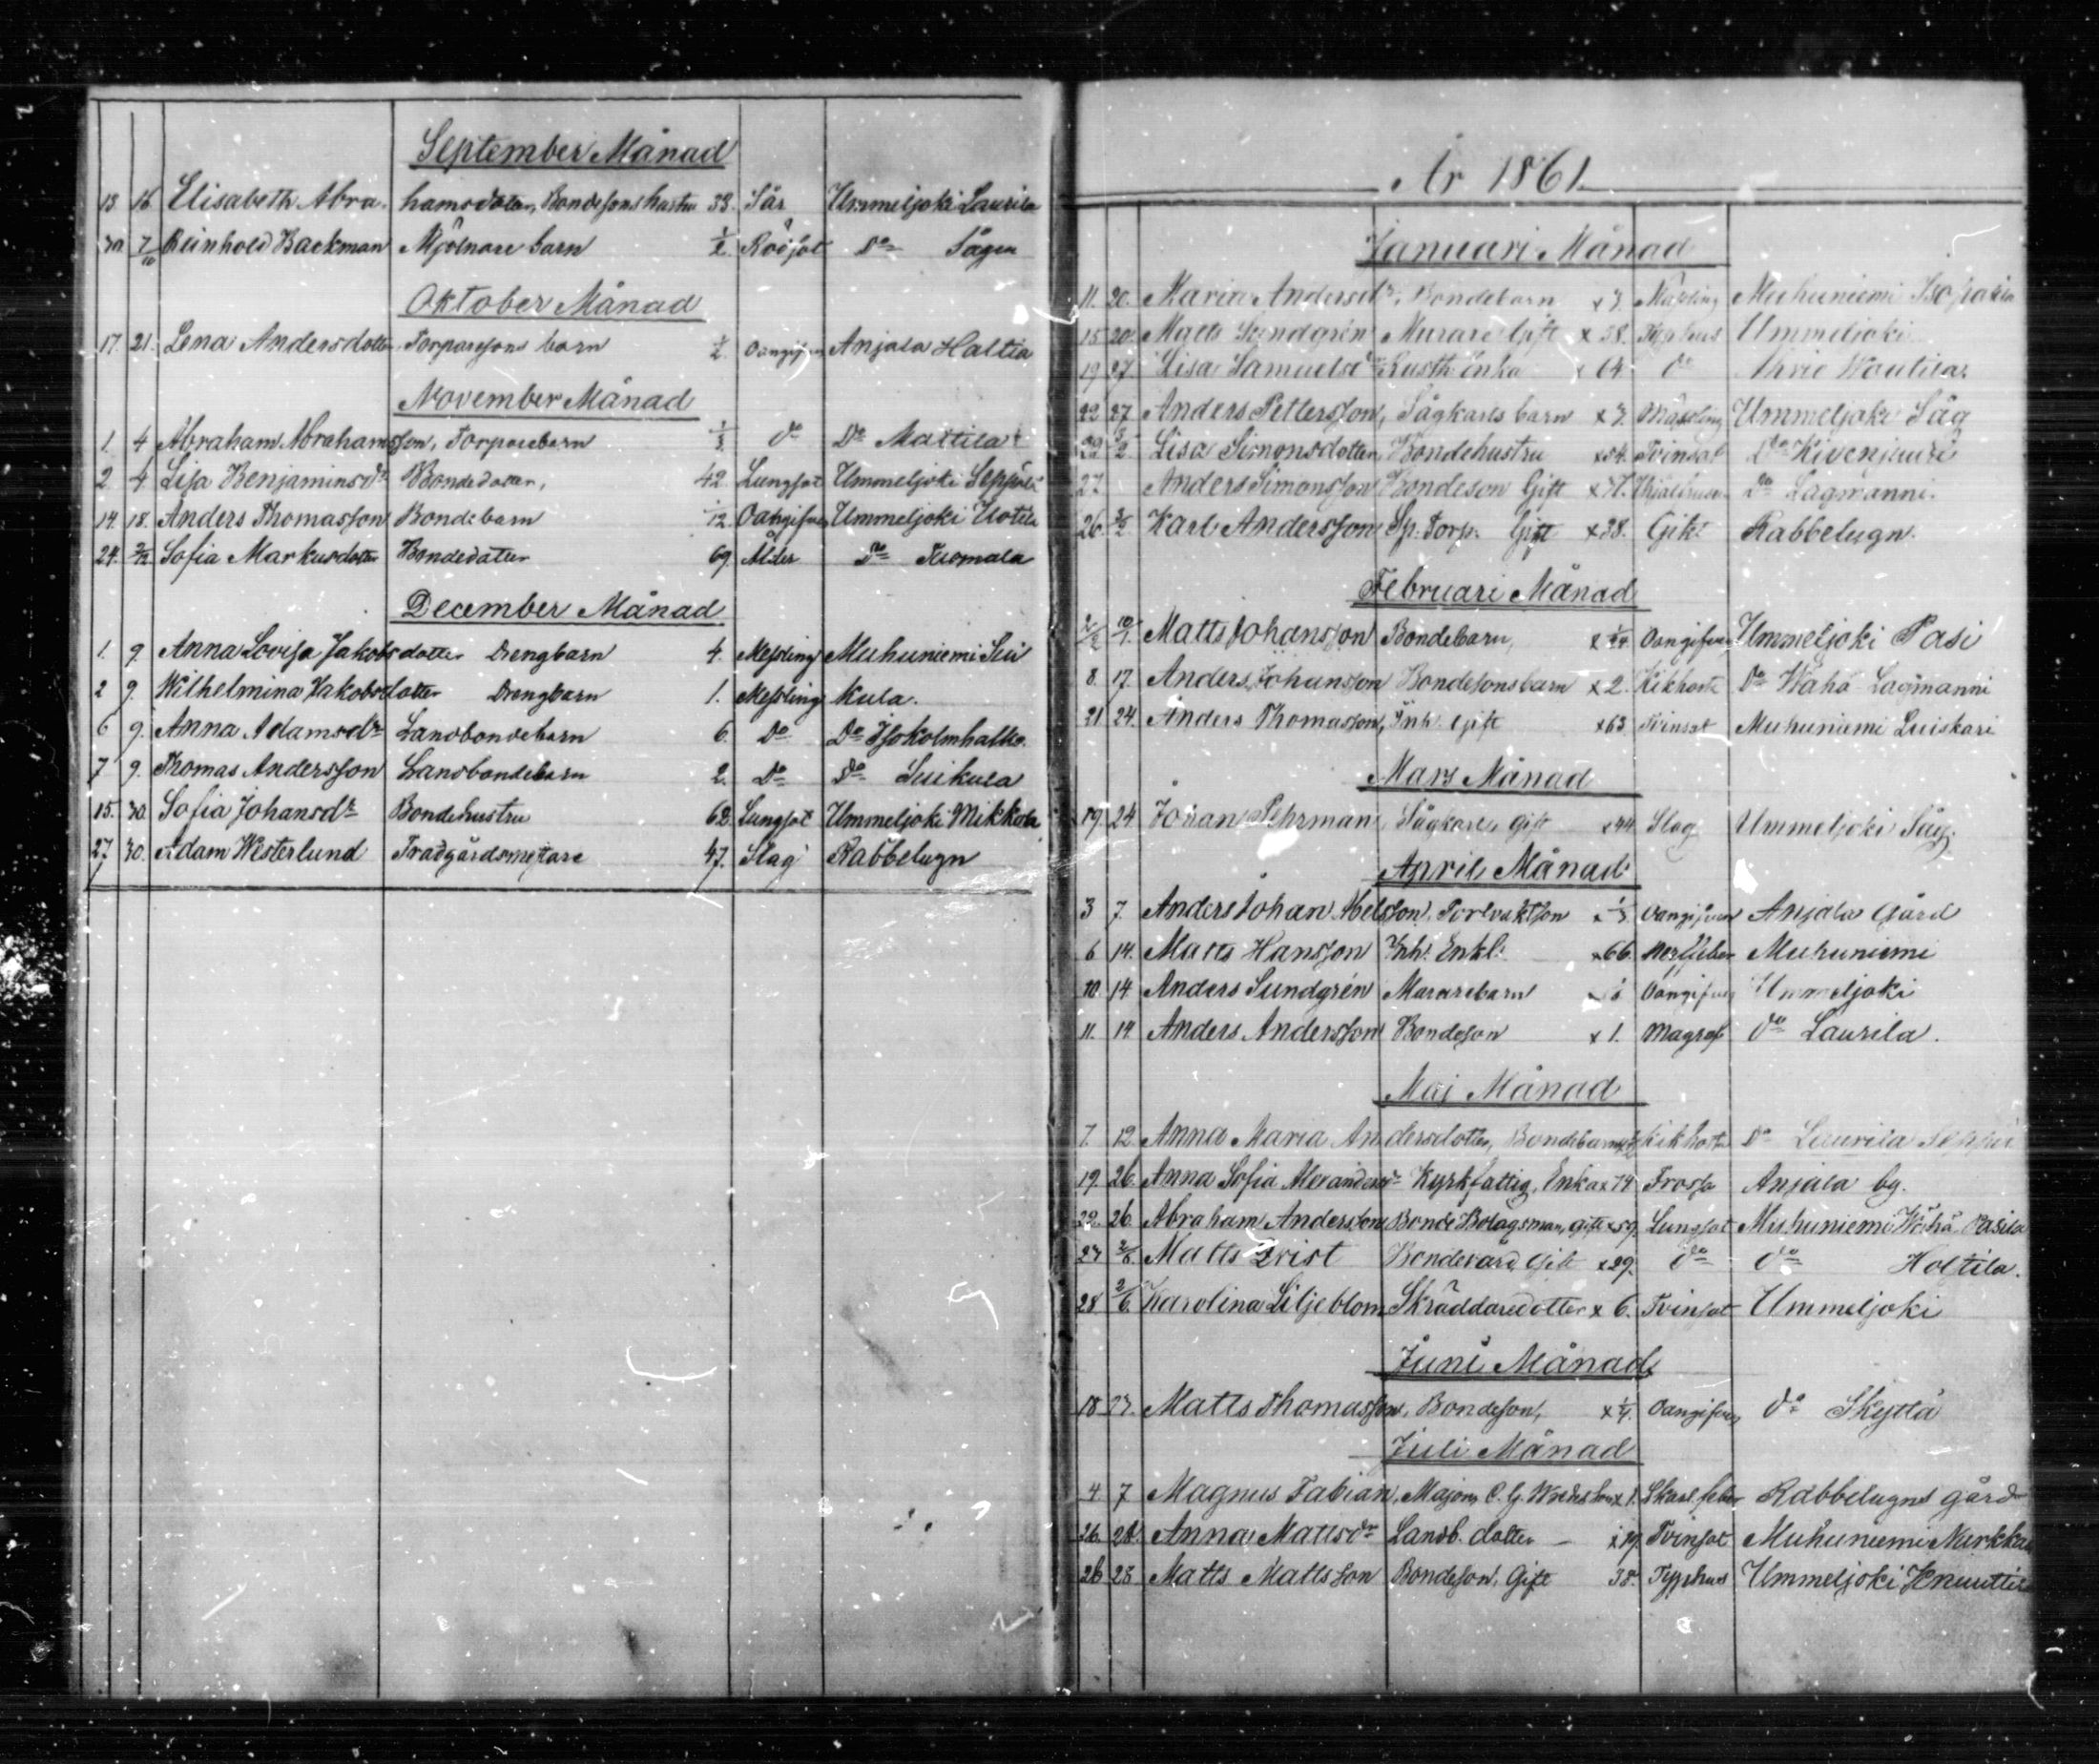 September Månad
13 16 Elisabeth Abrahamsdotter, Bondesons hustru 33. Sår Ummeljoki Laurila
30 7/10 Reinhold Backman Mjölnare barn 1/2 Rödsot Do Sågen
Oktober Månad
17. 21. Lena Andersdotter Torparesons barn 1/2 Oangifven Anjala Haltia
November Månad
1. 4 Abraham Abrahamsson, Torparebarn do Do Mattila
2. 4. Lisa Benjaminsdr Bondedotter, 42 Lungsot Ummeljoki Seppälä
14. 18. Anders Thomasson Bondebarn 1/12 Oangifven Ummeljoki Uotila
24. 2/12 Sofia Markusdotter Bondedotter 69. Ålder Do Tuomala
December Månad
1. 9. Anna Lovisa Jakobsdotter Drengbarn 4. Messling Muhuniemi Sui
2 9. Wilhelmina Jakobsdotter Drengbarn 1. Messling kula.
6 9. Anna Adamsdr Landbondebarn 6. Do Do
7 9. Thomas Andersson Landbondebarn 2. Do Do Suikula
15. 30. Sofia Johansdr Bondehustru 62. Lungsot Ummeljoki Mikkola
27 30. Adam Westerlund Trädgårdsmestare 47. Slag Rabbelugn
År 1861
Januari Månad
11. 20. Maria Andersdr, Bondebarn x 3. Mässling Muhuniemi
15 20 Matts Sundgrén Murare Gift x 38. Typhus Ummeljoki
19 27 Lisa Samuelsdr Rusth Enka x 64 do
22 27 Anders Pettersson, Sågkarls barn x 3. Mässling Ummeljoki Såg
Lisa Simonsdotter, Bondehustru x 54. Tvinsot Do
27 Anders Simonsson Bondeson Gift Do Lagmanni.
26. 3/2 Karl Andersson Sp. Torp. Gift x 38. Gikt Rabbelugn.
Februari Månad
Matts Johansson Bondebarn, Oangifven Ummeljoki Pasi
8. 17. Anders Johansson Bondesonsbarn x 2. Kikhosta Do Wähä Lagmanni
21 24. Anders Thomasson, Inh. Gift x 63 Tvinsot Muhuniemi Luiskari
Mars Månad
19. 24 Johan Sågkarl, gift x 44 Slag Ummeljoki Såg.
April Månad
3 7. Anders Johan Abelsson, Oangifven Anjala Gård
6 14. Matts Hansson Inh. Enkl. x 66. Nerffeber Muhuniemi
10. 14 Anders Sundgrén Murarebarn Oangifven Ummeljoki
11. 14 Anders Andersson Bondeson x 1. Magref Do Laurila.
Maj Månad
7. 12 Anna Maria Andersdotter, Bondebarn Kikhosta Do Laurila
19. 26. Anna Sofia Alexandersdr Kyrkfattig, Enka x 74 Frossa Anjala by.
22. 26. Abraham Andersson Bonde Bolagsman, Gift x 59. Lungsot Muhuniemi Wähä Pasila
27 2/6 Matts Qvist Gift x 29. do do Holstila.
28 2/6. Karolina Liljeblom Skräddaredotter x 6. Tvinsot Ummeljoki
Juni Månad
18 23. Matts Thomasson, Bondeson, x 1/4. Oangifven Do Skyttä
Juli Månad
4. 7 Magnus Fabian, Majoren C. G. Wredes son x 1. Skarl. feber Rabbelugns gård
26. 28. Anna Mattsdr Landb. dotter — x 19. Tvinsot Muhuniemi Nurkka
26 28 Matts Mattsson Bondeson, Gift 38. Typhus Ummeljoki Knuuttila